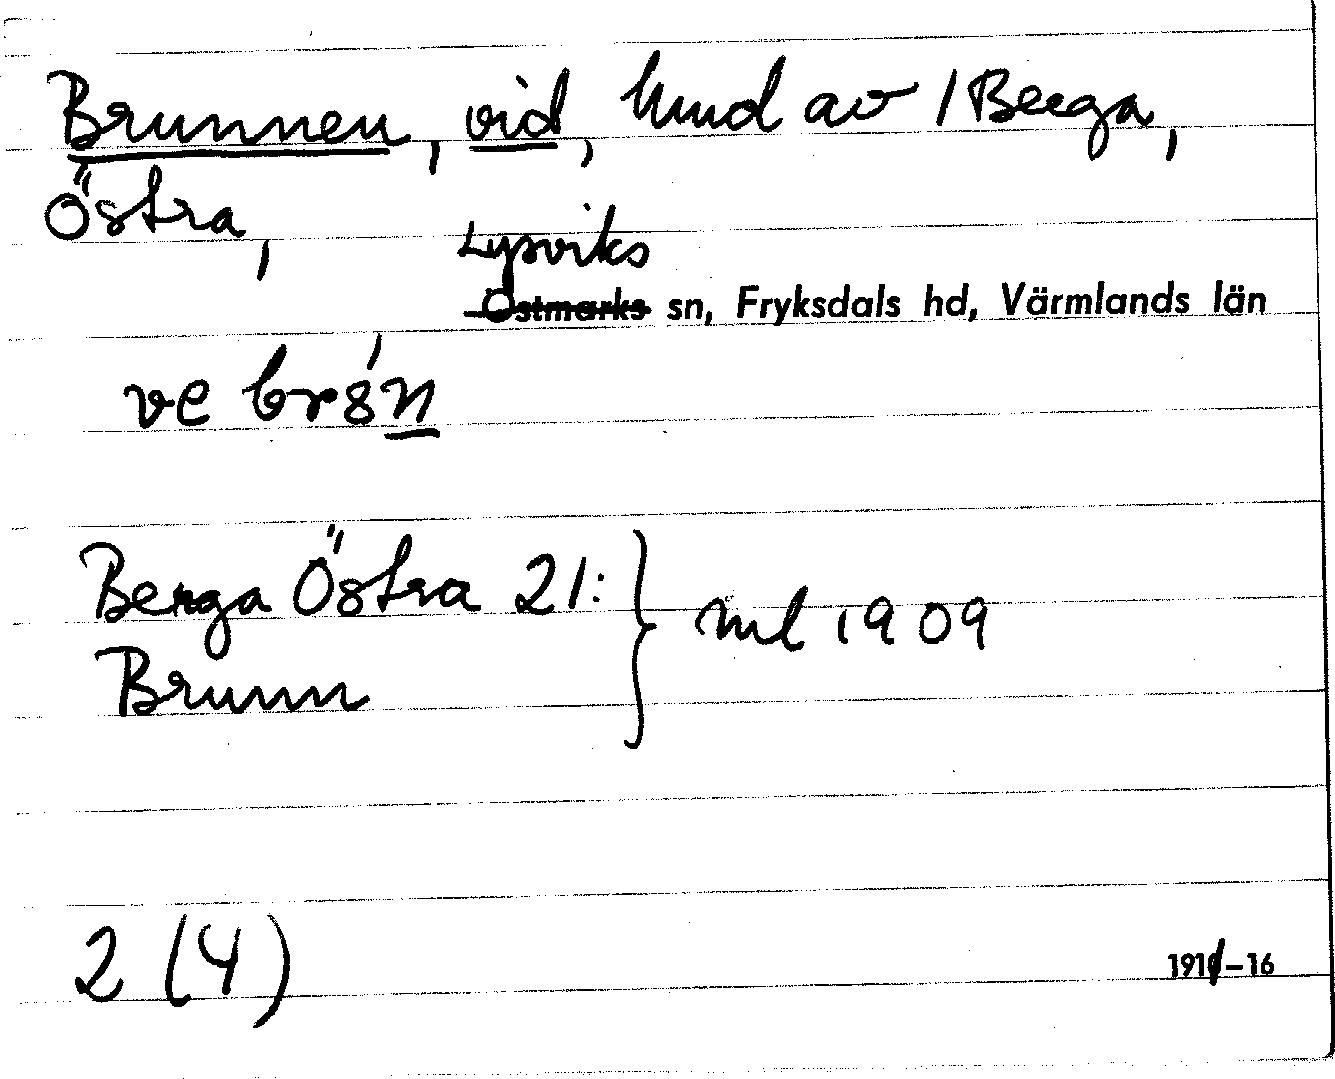 Brunnen, vid, hmd av 1 Berga,
Östra,
Lysviks
Östmarks sn, Fryksdals hd, Värmlands län
ve br8´n
Berga Östra 21:
Brunn
ml 1909
2 (4)
1911–16